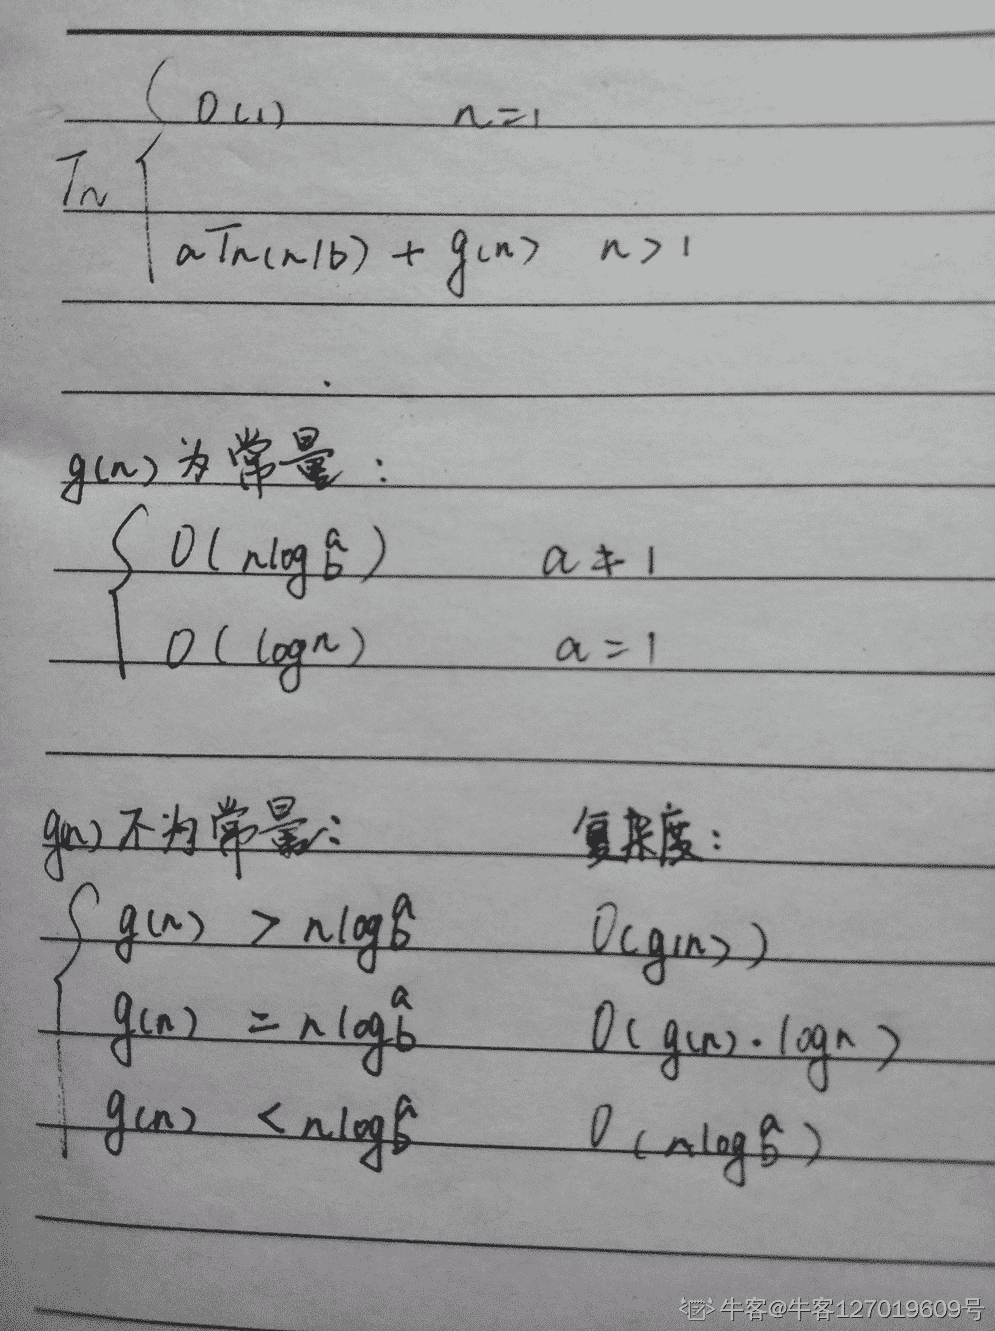 O(1) n=1
Tn
aTn(n/b) + g(n) n>1
g(n)为常量:
O(nlog_b^a) a≠1
O(logn) a=1
g(n)不为常量: 复杂度:
g(n) > nlog_b^a O(g(n))
g(n) = nlog_b^a O(g(n)·logn)
g(n) < nlog_b^a O(nlog_b^a)
牛客@牛客127019609号